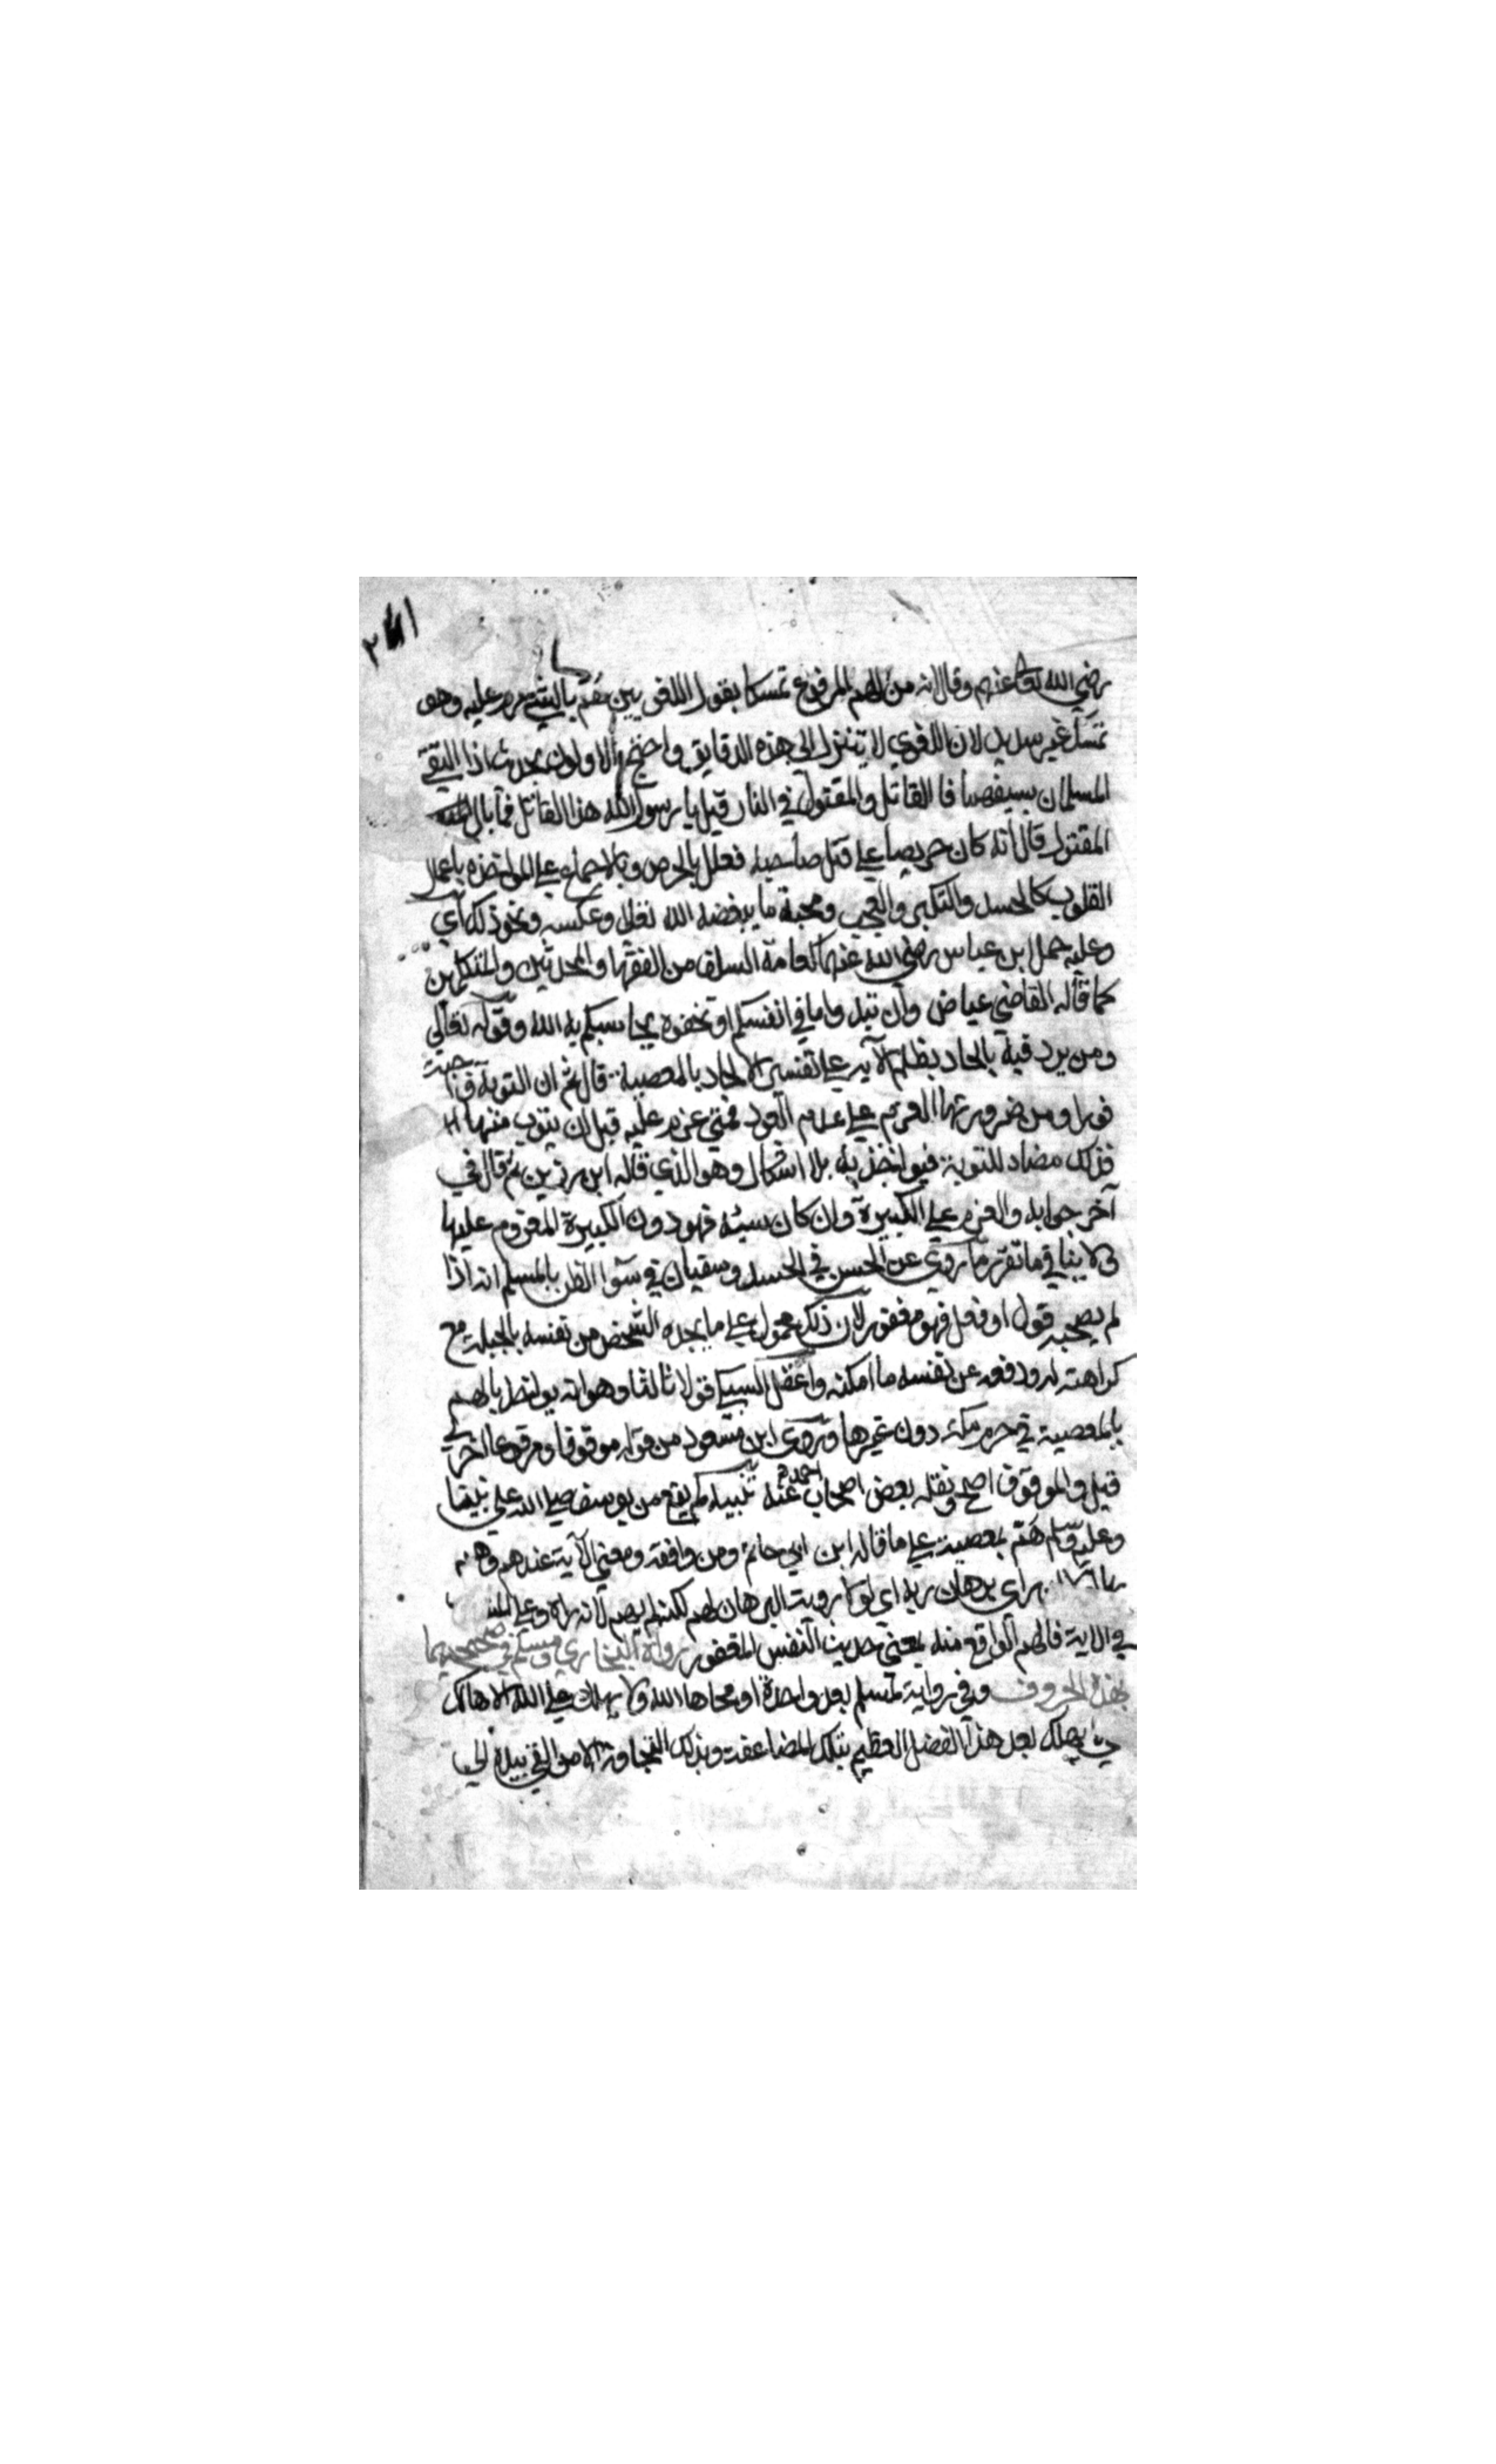 رضي الله تعا عنهم وقال انه من الهم المرفوع تمسكا بقول اللغويين هم بالشي عزم عليه وهو
تمسك غير سديد لان اللغوي لا يتنزل الى هذه الدقايق واحتج الاولون بحديث اذا التقي
المسلمان بسيفهما فا القاتل والمقتول في النار قيل يا رسول الله هذا القاتل فما بال
المقتول قال انه كان حريصا على قتل صاحبه فعلل بالحرص وبالاجماع على المواخذه باعمال
القلوب كالحسد والتكبر والعجب ومحبة ما يبغضه الله تعالى وعكسه ونحو ذلك اي
وعليه حمل ابن عباس رضي الله عنهما كعامة السلف من الفقها والمحدثين والمتكلمين
كما قاله القاضي عياض وان تبدوا ما في انفسكم او تخفوه يحاسبكم به الله وقوله تعالى
ومن يرد فيه بالحاد بظلم الآيه على تفسير الالحاد بالمعصية قال ثم ان التوبة واجبة
فورا ومن ضرورتها العزم على عدم العود فمتى عزم عليه قبل ان يتوب منها
فذلك مضاد للتوبة فيواخذ به بلا اشكال وهو الذي قاله ابن رزين ثم قال في
آخر جوابه والعزم على الكبيرة وان كان سيئه فهو دون الكبيرة المعزوم عليها
ولا ينافي ما تقرر ما روى عن الحسن في الحسد وسفيان في سوا الظن بالمسلم انه اذا
لم يصحبه قول او فعل فهو مغفور لان ذلك محمول على ما يجده الشخص من نفسه بالجبلة مع
كراهته له ودفعه عن نفسه ما امكنه واغفل السبكي قولا ثالثا وهو انه يواخذ بالهم
بالمعصية في حرم مكة دون غيرها وروى ابن مسعود من قوله موقوفا ومرفوعا اخر
قيل والموقوف اصح ونقله بعض اصحاب احمد عنه تنبيه لم يقع من يوسف صلى الله على نبينا
وعليه وسلم هم بمعصية على ما قاله ابن ابي حاتم ومن وافقه ومعنى الآية عندهم وهم
بها راى برهان ربه اى لولا رويت البرهان لهم لكنه لم يهم لانه راه وعلى
في الاية فالهم الواقع منه بمعنى حديث النفس المغفور رواه البخاري ومسلم في صحيحيهما
بهذه الحروف وفي رواية لمسلم بعد واحدة او محاها الله ولا يهلك على الله الا هالك
يهلك بعد هذا الفضل العظيم بتلك المضاعفت وبذلك التجاوز